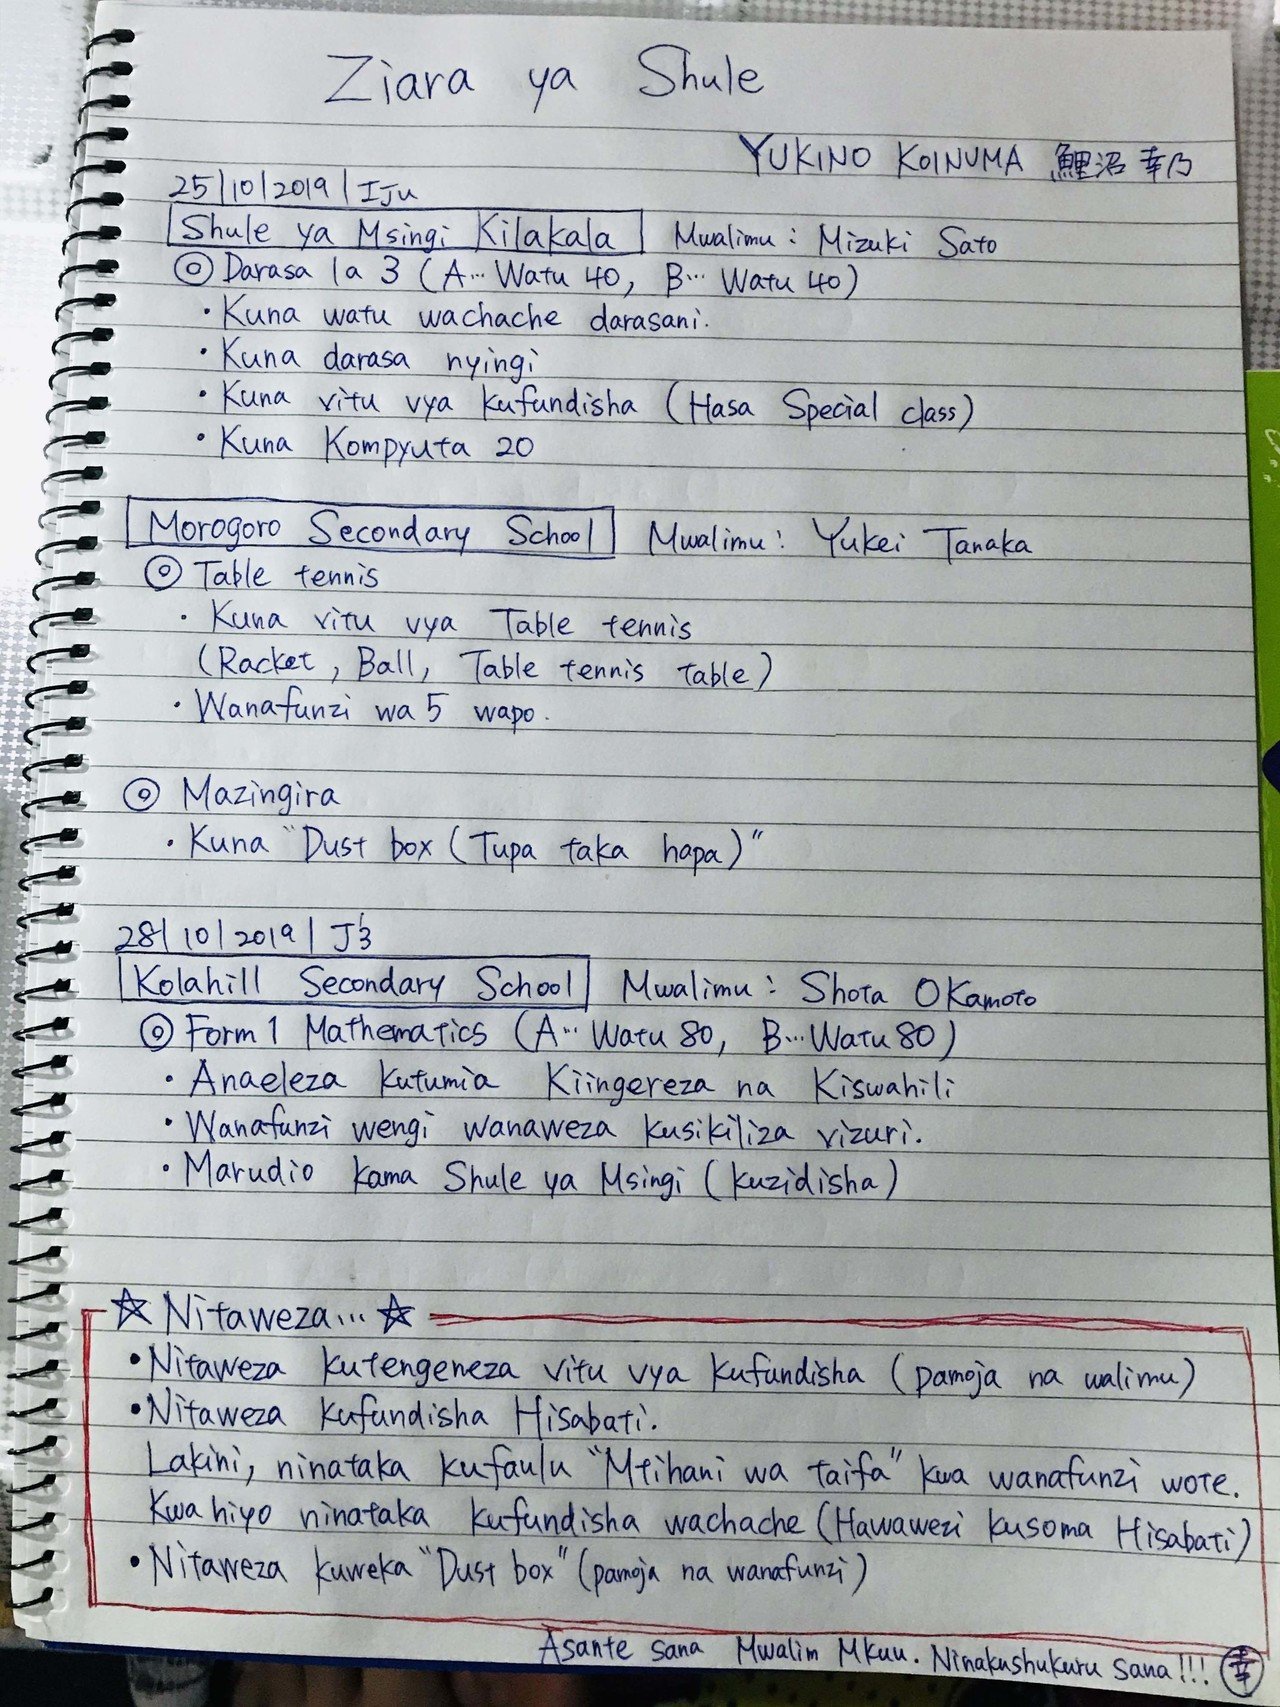 Ziara ya Shule
YUKINO KOINUMA 鯉沼 幸乃
25/10/2019/IJU
Shule ya Msingi Kilakala Mwalimu: Mizuki Sato
◎ Darasa la 3 (A… Watu 40, B… Watu 40)
・Kuna watu wachache darasani.
・Kuna darasa nyingi
・Kuna vitu vya kufundisha (Hasa Special class)
・Kuna Kompyuta 20
Morogoro Secondary School Mwalimu: Yukei Tanaka
◎ Table tennis
・Kuna vitu vya Table tennis
(Racket, Ball, Table tennis table)
・Wanafunzi wa 5 wapo.
◎ Mazingira
・Kuna "Dust box (Tupa taka hapa)"
28/10/2019/J'3
Kolahill Secondary School Mwalimu: Shota Okamoto
◎ Form 1 Mathematics (A… Watu 80, B… Watu 80)
・Anaeleza kutumia Kiingereza na Kiswahili
・Wanafunzi wengi wanaweza kusikiliza vizuri.
・Marudio kama Shule ya Msingi (kuzidisha)
☆ Nitaweza... ☆
・Nitaweza kutengeneza vitu vya kufundisha (pamoja na walimu)
・Nitaweza kufundisha Hisabati.
Lakini, ninataka kufaulu "Mtihani wa taifa" kwa wanafunzi wote.
Kwa hiyo ninataka kufundisha wachache (Hawawezi kusoma Hisabati)
・Nitaweza kuweka "Dust box" (pamoja na wanafunzi)
Asante sana Mwalim Mkuu. Ninakushukuru sana!!! 幸